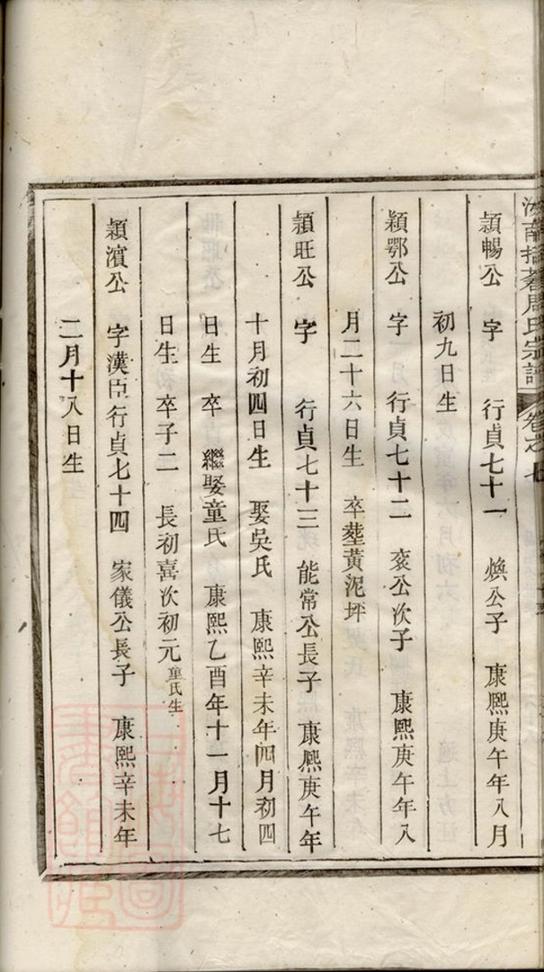 南 周氏宗譜 卷之七
穎暢公 字 行貞七十一 煥公子 康熙庚午年八月
初九日生
穎鄂公 字 行貞七十二 袞公次子 康熙庚午年八
月二十六日生 卒塟黃泥坪
穎旺公 字 行貞七十三 能常公長子 康熙庚午年
十月初四日生 娶吳氏 康熙辛未年四月初四
日生 卒 繼娶童氏 康熙乙酉年十一月十七
日生 卒子二 長初喜次初元童氏生
穎濱公 字漢臣行貞七十四 家儀公長子 康熙辛未年
二月十八日生